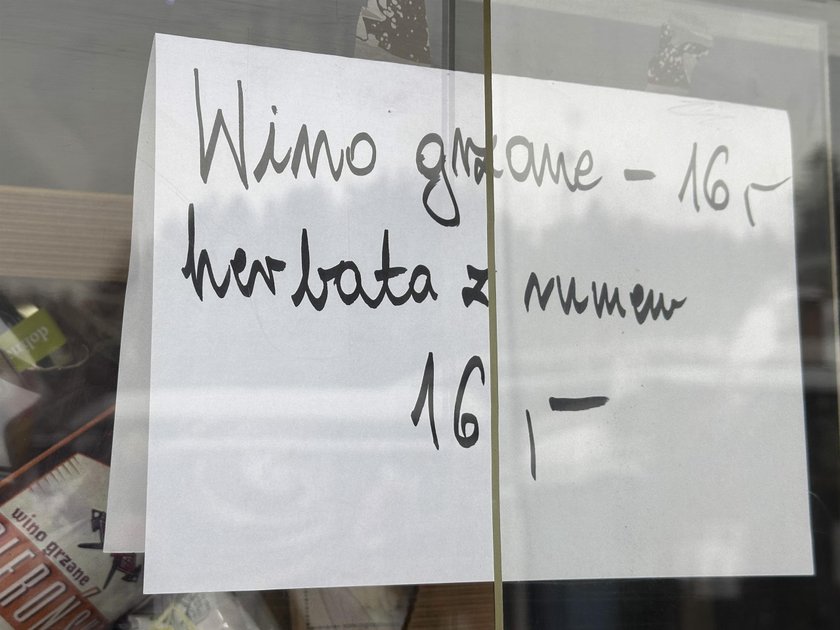 Wino grzane - 16,-
herbata z rumem
16,-
wino grzane